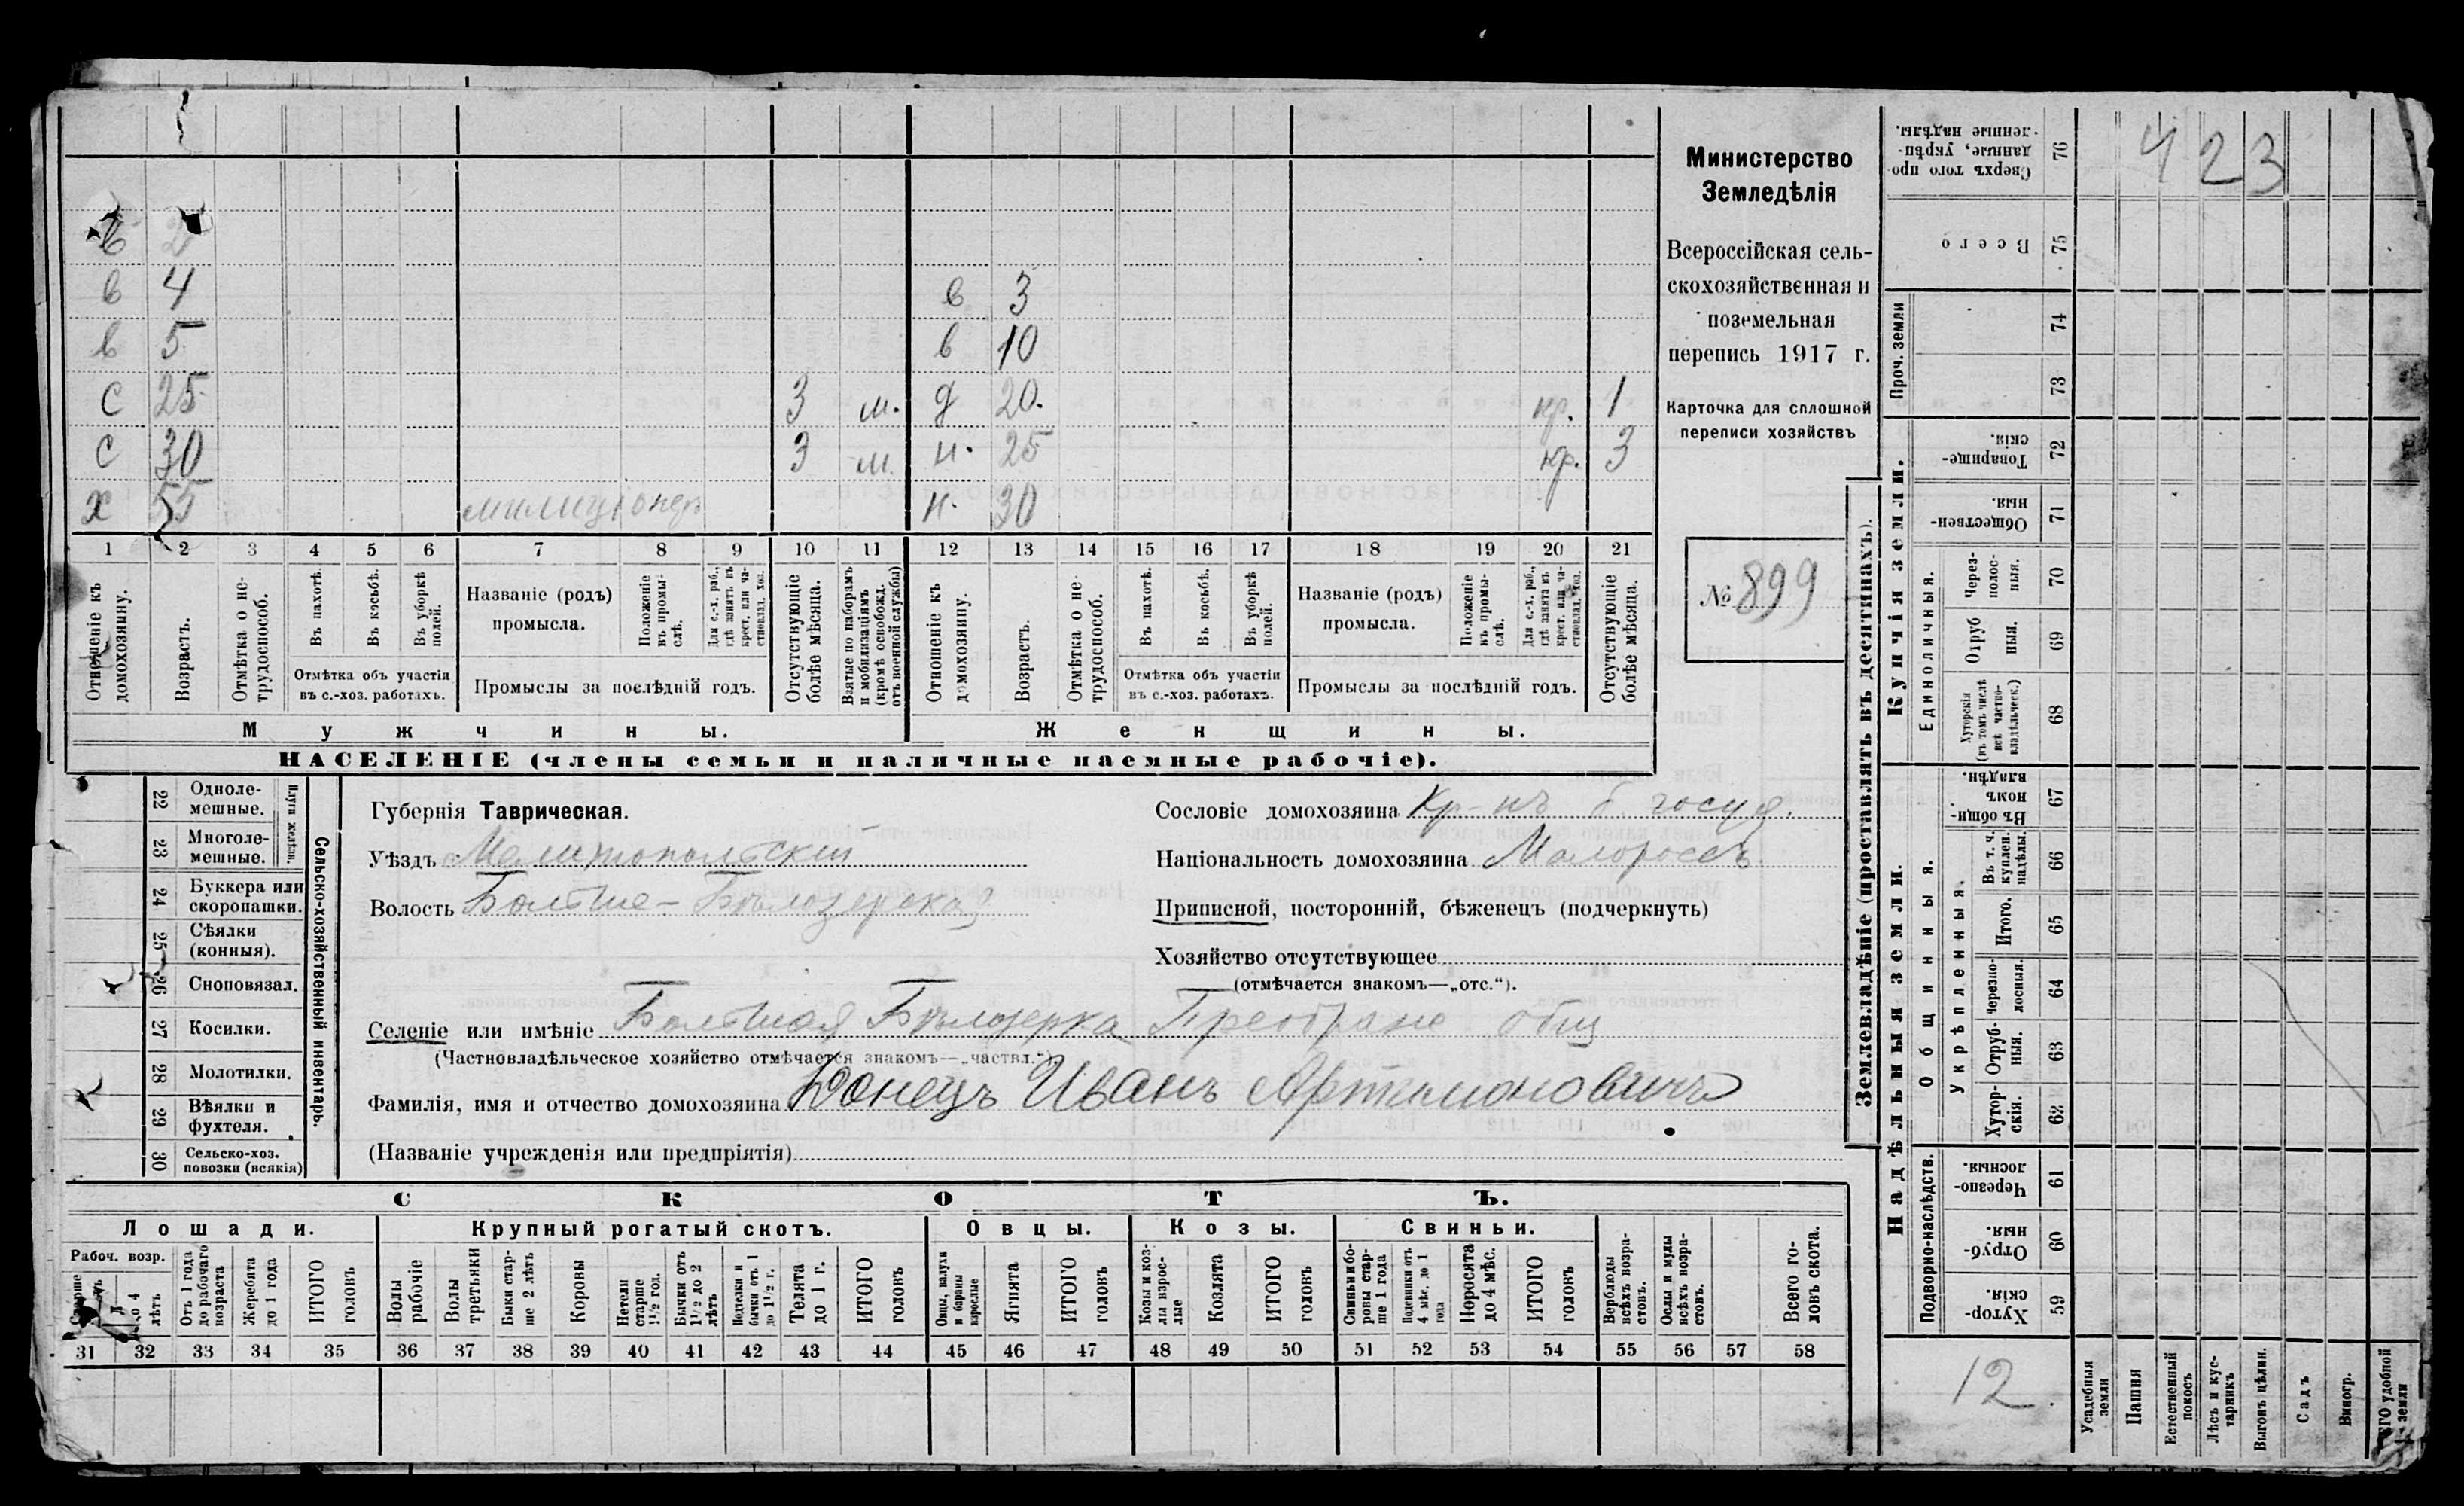 в 2
в 4 в 3
в 5 в 10
с 25 3 м. д 20. кр. 1
с 30 3 м. н. 25 кр. 3
х 55 милиціонеръ н. 30
1 2 3 4 5 6 7 8 9 10 11 12 13 14 15 16 17 18 19 20 21
Отношеніе къ домохозяину.
Возрастъ.
Отмѣтка о нетрудоспособ.
Въ пахотѣ.
Въ косьбѣ.
Въ уборкѣ полей.
Отмѣтка объ участіи
въ с.-хоз. работахъ.
Названіе (родъ)
промысла.
Положеніе въ промыслѣ.
Для с.-х. раб., гдѣ занятъ въ крест. или частновлад. хоз.
Промыслы за послѣдній годъ.
Отсутствующіе болѣе мѣсяца.
Взятые по наборамъ и мобилизаціямъ (кромѣ освобожд. отъ военной службы)
Отношеніе къ домохозяину.
Возрастъ.
Отмѣтка о нетрудоспособ.
Въ пахотѣ.
Въ косьбѣ.
Въ уборкѣ полей.
Отмѣтка объ участіи
въ с.-хоз. работахъ.
Названіе (родъ)
промысла.
Положеніе въ промыслѣ.
Для с.-х. раб., гдѣ занята въ крест. или частновлад. хоз.
Промыслы за послѣдній годъ.
Отсутствующіе болѣе мѣсяца.
Мужчины. Женщины.
НАСЕЛЕНІЕ (члены семьи и наличные наемные рабочіе).
Министерство
Земледѣлія
Всероссійская сель-
скохозяйственная и
поземельная
перепись 1917 г.
Карточка для сплошной
переписи хозяйствъ
№ 899
Сельско-хозяйственный инвентарь.
Плуги желѣзн.
22 Одноле-
мешные.
23 Многоле-
мешные.
24 Буккера или
скоропашки.
25 Сѣялки
(конныя).
26 Сноповязал.
27 Косилки.
28 Молотилки.
29 Вѣялки и
фухтеля.
30 Сельско-хоз.
повозки (всякія)
Губернія Таврическая.
Уѣздъ Мелитопольскій
Волость Больше-Бѣлозерская
Сословіе домохозяина Кр-нъ б. госуд.
Національность домохозяина Малороссъ.
Приписной, посторонній, бѣженецъ (подчеркнуть)
Хозяйство отсутствующее
(отмѣчается знакомъ—„отс.“).
Селеніе или имѣніе Большая Бѣлозерка Преображ общ
(Частновладѣльческое хозяйство отмѣчается знакомъ—„частвл.“)
Фамилія, имя и отчество домохозяина Донецъ Иванъ Артимоновичъ
(Названіе учрежденія или предпріятія)
СКОТЪ.
Лошади. Крупный рогатый скотъ. Овцы. Козы. Свиньи.
Рабоч. возр.
до 4 лѣтъ
Отъ 1 года до рабочаго возраста
Жеребята до 1 года
ИТОГО головъ
Волы рабочіе
Волы третьяки
Быки старше 2 лѣтъ
Коровы
Нетели старше 1½ гол.
Бычки отъ 1½ до 2 лѣтъ
Подтелки и бычки отъ 1 до 1½ г.
Телята до 1 г.
ИТОГО головъ
Овцы, валухи и бараны взрослые
Ягнята
ИТОГО головъ
Козы и козлы взрослые
Козлята
ИТОГО головъ
Свиньи и боровы старше 1 года
Подсвинки отъ 4 мѣс. до 1 года
Поросята до 4 мѣс.
ИТОГО головъ
Верблюды всѣхъ возрастовъ.
Ослы и мулы всѣхъ возрастовъ.
Всего головъ скота.
31 32 33 34 35 36 37 38 39 40 41 42 43 44 45 46 47 48 49 50 51 52 53 54 55 56 57 58
Землевладѣніе (проставлять въ десятинахъ).
Купчія земли.
Надѣльныя земли.
Сверхъ того проданные, укрѣпленные надѣлы. 76
423
Всего 75
Проч. земли
74
73
Товарищескія. 72
Общественныя. 71
Единоличныя.
Черезполосныя. 70
Отрубныя. 69
Хуторскія (въ томъ числѣ всѣ частновладѣльческ.) 68
Въ общинномъ владѣн. 67
Общинныя.
Укрѣпленныя.
Въ т. ч. куплен. надѣлы. 66
Итого. 65
Черезполосныя. 64
Отрубныя. 63
Хуторскія. 62
Подворно-наслѣдств.
Черезполосныя. 61
Отрубныя. 60
Хуторскія. 59
12.
Усадебныя земли
Пашня
Естественный покосъ
Лѣсъ и кустарникъ
Выгонъ цѣлин.
Садъ
Виногр.
удобной земли